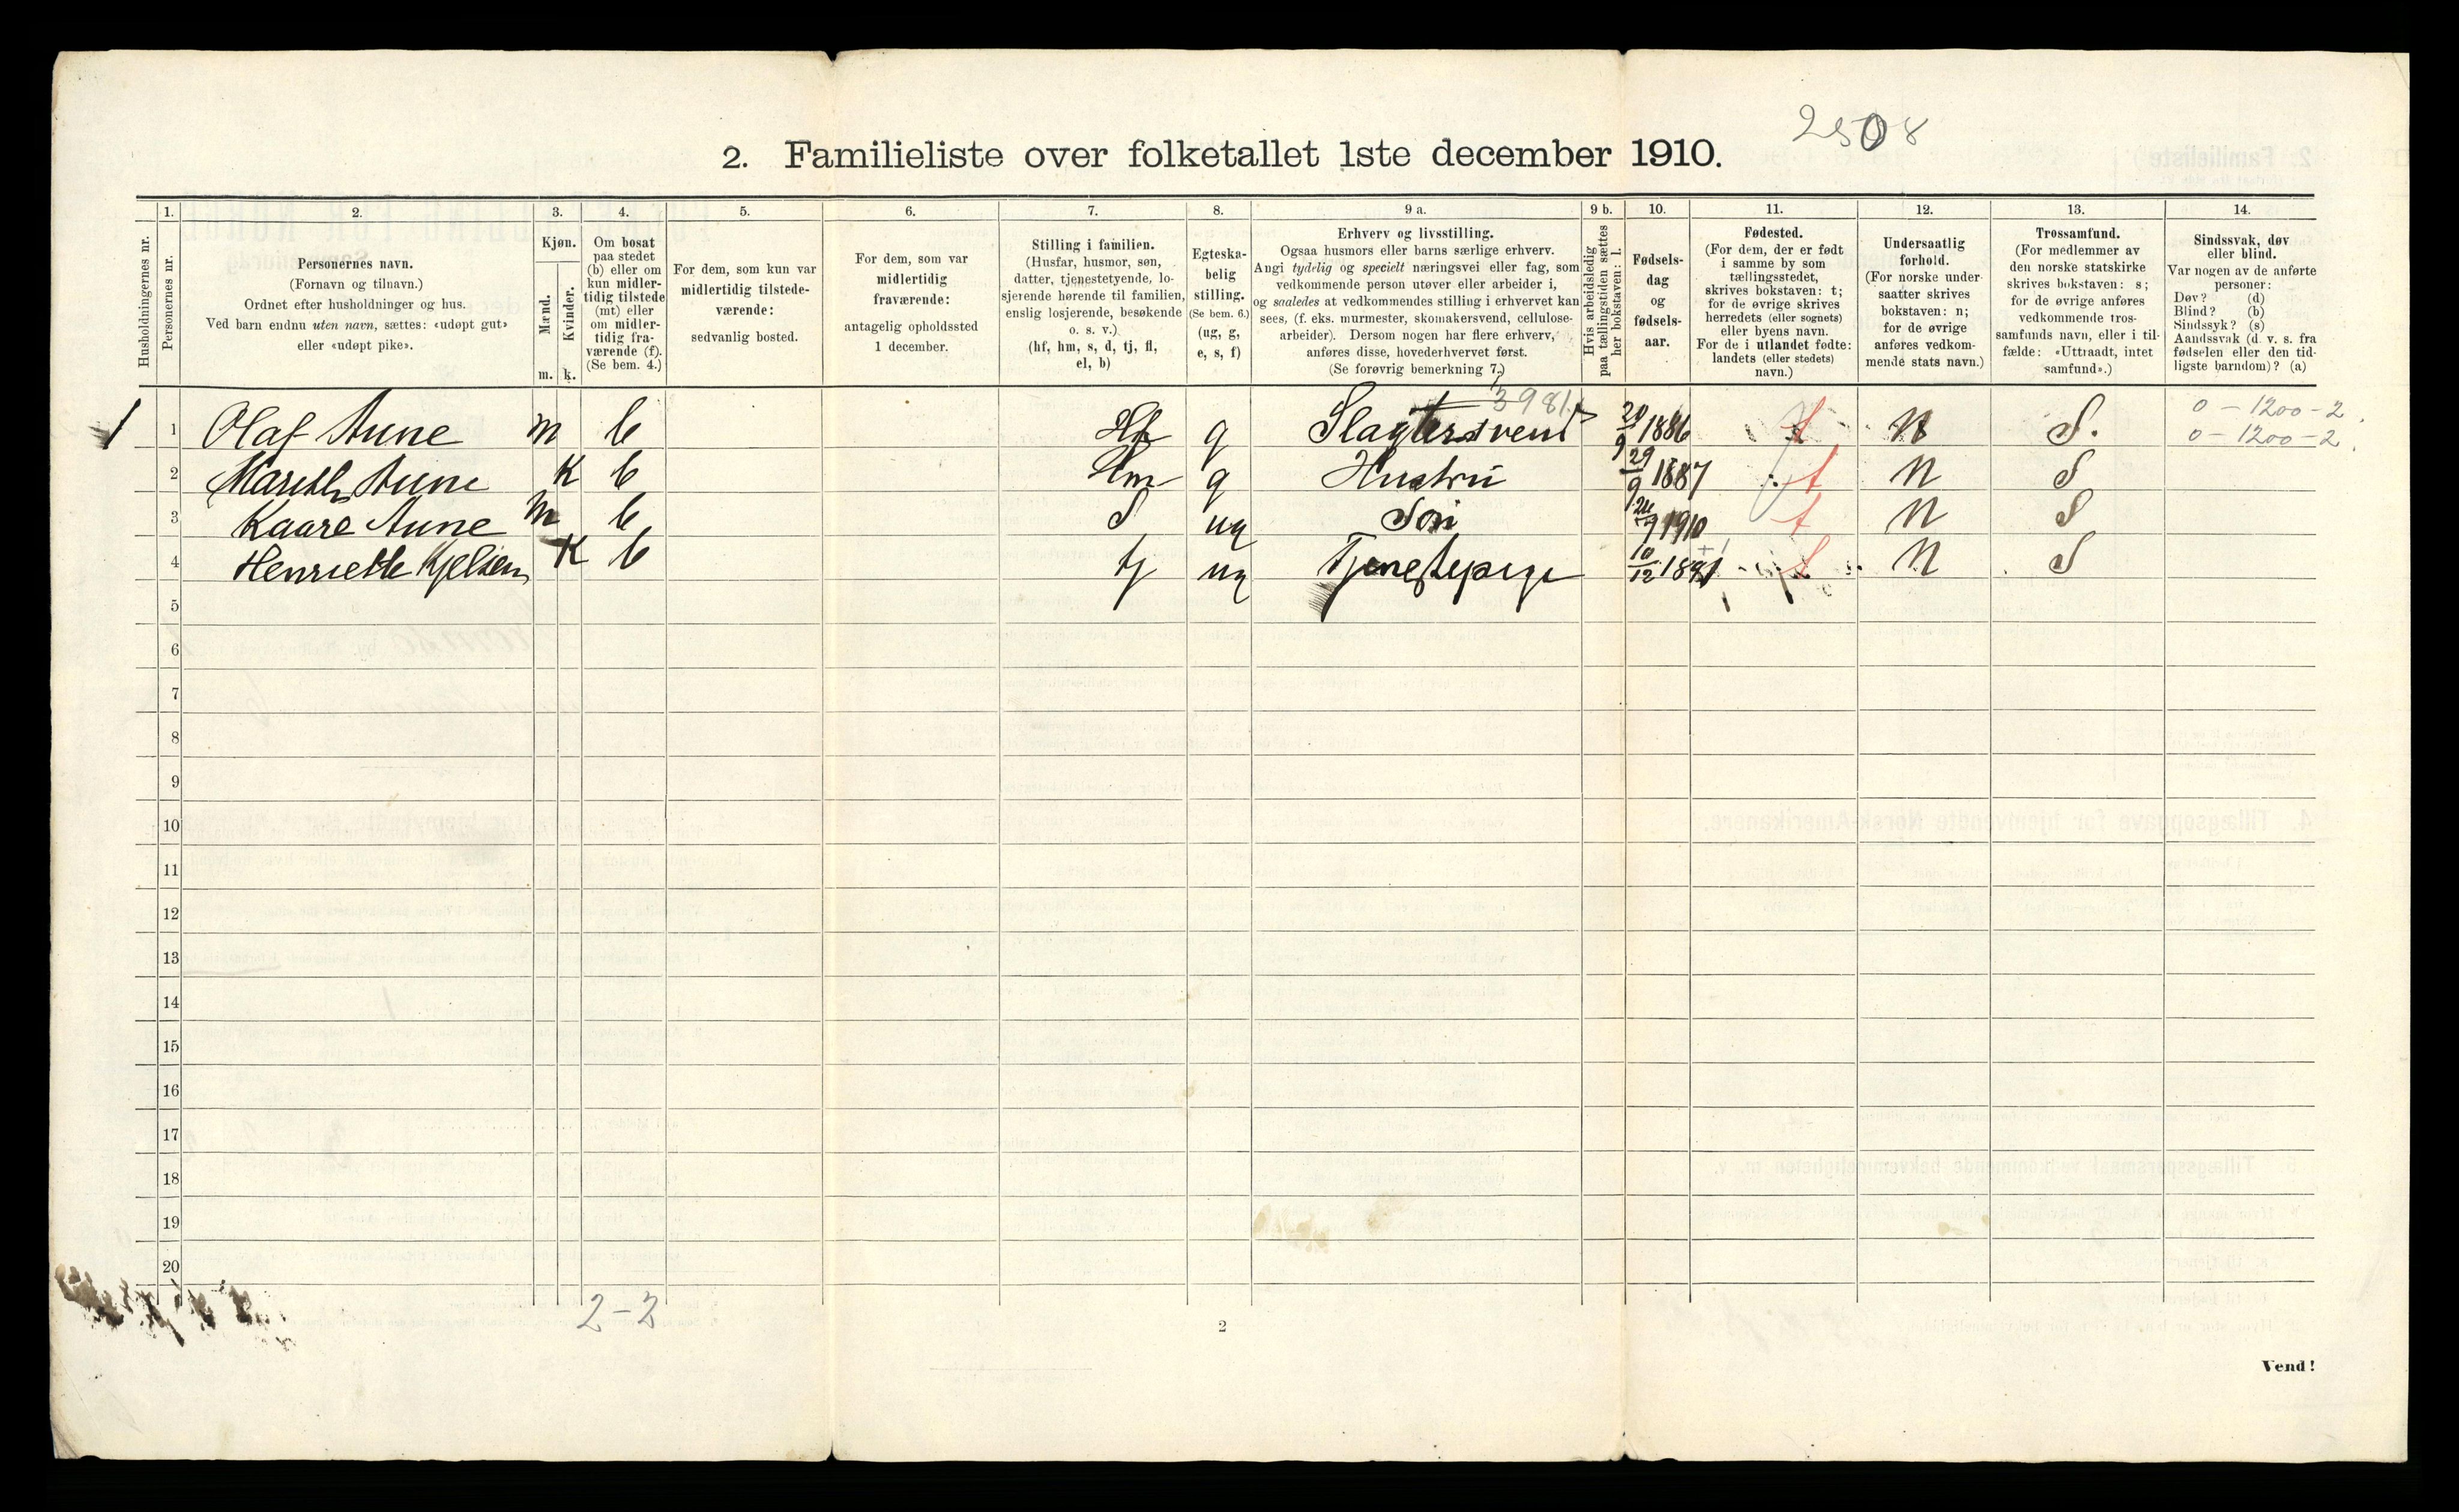 2508
2. Familieliste over folketallet 1ste december 1910.
Husholdningernes nr.
1.
Personernes nr.
2.
Personernes navn.
(Fornavn og tilnavn.)
Ordnet efter husholdninger og hus.
Ved barn endnu uten navn, sættes: «udøpt gut»
eller «udøpt pike».
3.
Kjøn.
Mænd.
Kvinder.
m. k.
4.
Om bosat
paa stedet
(b) eller om
kun midler-
tidig tilstede
(mt) eller
om midler-
tidig fra-
værende (f).
(Se bem. 4.)
5.
For dem, som kun var
midlertidig tilstede-
værende:
sedvanlig bosted.
6.
For dem, som var
midlertidig
fraværende:
antagelig opholdssted
1 december.
7.
Stilling i familien.
(Husfar, husmor, søn,
datter, tjenestetyende, lo-
sjerende hørende til familien,
enslig losjerende, besøkende
o. s. v.)
(hf, hm, s, d, tj, fl,
el, b)
8.
Egteska-
belig
stilling.
(Se bem. 6.)
(ug, g,
e, s, f)
9 a.
Erhverv og livsstilling.
Ogsaa husmors eller barns særlige erhverv.
Angi tydelig og specielt næringsvei eller fag, som
vedkommende person utøver eller arbeider i,
og saaledes at vedkommendes stilling i erhvervet kan
sees, (f. eks. murmester, skomakersvend, cellulose-
arbeider). Dersom nogen har flere erhverv,
anføres disse, hovederhvervet først.
(Se forøvrig bemerkning 7.)
9 b.
Hvis arbeidsledig
paa tællingstiden sættes
her bokstaven: l.
10.
Fødsels-
dag
og
fødsels-
aar.
11.
Fødested.
(For dem, der er født
i samme by som
tællingsstedet,
skrives bokstaven: t;
for de øvrige skrives
herredets (eller sognets)
eller byens navn.
For de i utlandet fødte:
landets (eller stedets)
navn.)
12.
Undersaatlig
forhold.
(For norske under-
saatter skrives
bokstaven: n;
for de øvrige
anføres vedkom-
mende stats navn.)
13.
Trossamfund.
(For medlemmer av
den norske statskirke
skrives bokstaven: s;
for de øvrige anføres
vedkommende tros-
samfunds navn, eller i til-
fælde: «Uttraadt, intet
samfund».)
14.
Sindssvak, døv
eller blind.
Var nogen av de anførte
personer:
Døv? (d)
Blind? (b)
Sindssyk? (s)
Aandssvak (d. v. s. fra
fødselen eller den tid-
ligste barndom)? (a)
3981
0 - 1200 - 2
1 1 Olaf Aune m b Hf g Slagtersvend 20/9 1886 t N S. 0 - 1200 - 2
2 Mareth Aune K b Hm g Hustru 29/9 1887 t N S
3 Kaare Aune m b S ug Søn 24/9 1910 t N S
4 Henriette Kjelsen K b tj ug Tjenestepige 10/12 1891 t N S
5
6
7
8
9
10
11
12
13
14
15
16
17
18
19
20
2-2
2
Vend!